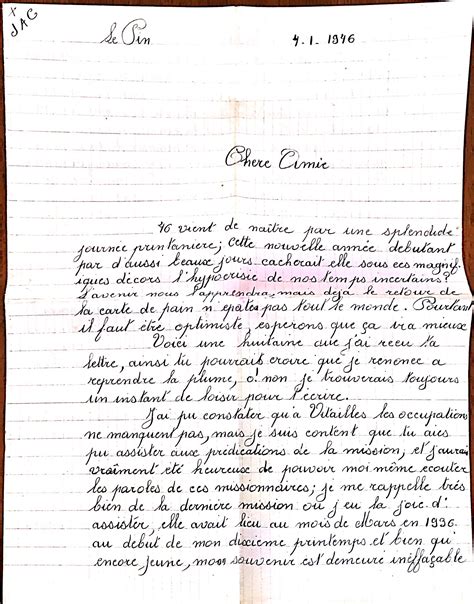 x
JAC
Le Pin 4.1.1946
Chere Amie
46 vient de naître par une splendide
journée printaniere; Cette nouvelle année debutant
par d'aussi beaux jours cacherait elle sous ces magnif-
iques décors l'hypocrisie de nos temps incertains?
L'avenir nous l'apprendra, mais dejà le retour de
la carte de pain n'epate pas tout le monde. Pourtant
il faut être optimiste, esperons que ça ira mieux
Voici une huitaine que j'ai recu ta
lettre, ainsi tu pourrais croire que je renonce a
reprendre la plume, o! non je trouverais toujours
un instant de loisir pour t'ecrire.
J'ai pu constater qu'a Vitailles les occupations
ne manquent pas, mais je suis content que tu aies
pu assister aux prédications de la mission, et j'aurais
vraîment été heureuse de pouvoir moi même ecouter
les paroles de ces missionnaires; je me rappelle très
bien de la dernière mission où j'eu la joie d'
assister, elle avait lieu au mois de Mars en 1936
au debut de mon dixieme printemps et bien qu'
encore jeune, mon souvenir est demeuré ineffaçable